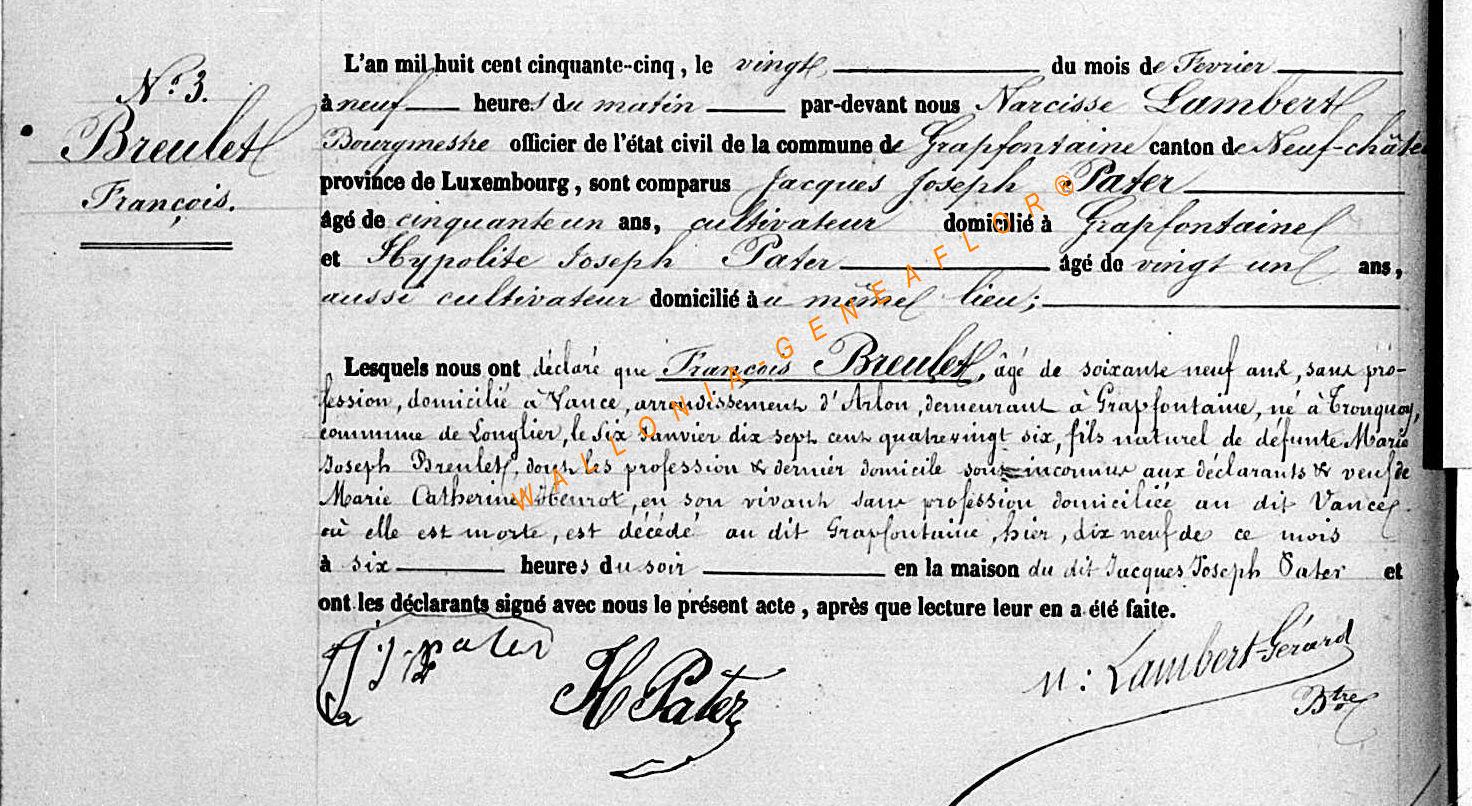 N.º 3.
Breulet
François.
L'an mil huit cent cinquante-cinq, le vingt du mois de Fevrier
à neuf heures du matin par-devant nous Narcisse Lambert
Bourgmestre officier de l'état civil de la commune de Grapfontaine canton de Neuf-château
province de Luxembourg, sont comparus Jacques Joseph Pater
âgé de cinquante un ans, cultivateur domicilié à Grapfontaine
et Hypolite Joseph Pater âgé de vingt un ans,
aussi cultivateur domicilié au même lieu;
Lesquels nous ont déclaré que François Breulet, âgé de soixante neuf ans, sans pro-
fession, domicilié à Vance, arrondissement d'Arlon, demeurant à Grapfontaine, né à Tronquoy,
commune de Longlier, le six Janvier dix sept cent quatrevingt six, fils naturel de défunte Marie
Joseph Breulet, dont les profession & dernier domicile sont inconnus aux déclarants & veuf de
Marie Catherine, en son vivant sans profession domiciliée au dit Vance
où elle est morte, est décédé au dit Grapfontaine, hier, dix neuf de ce mois
à six heures du soir en la maison du dit Jacques Joseph Pater et
ont les déclarants signé avec nous le présent acte, après que lecture leur en a été faite.
J j pater
H Pater
N: Lambert-Gérard
Btre
WALLONIA-GENEAFLOR®